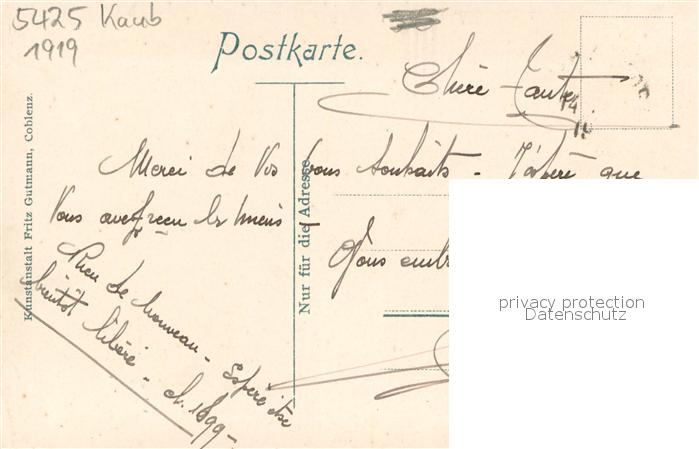 5425 Kaub
1919
Postkarte.
Chère Tante
Merci de Vos bons souhaits - J'espère que
Vous avez reçu les miens -
Vous embr
Rien de nouveau - Espère être
bientôt libéré - cl. 1899 -
Nur für die Adresse
Kunstanstalt Fritz Gutmann, Coblenz.
privacy protection
Datenschutz